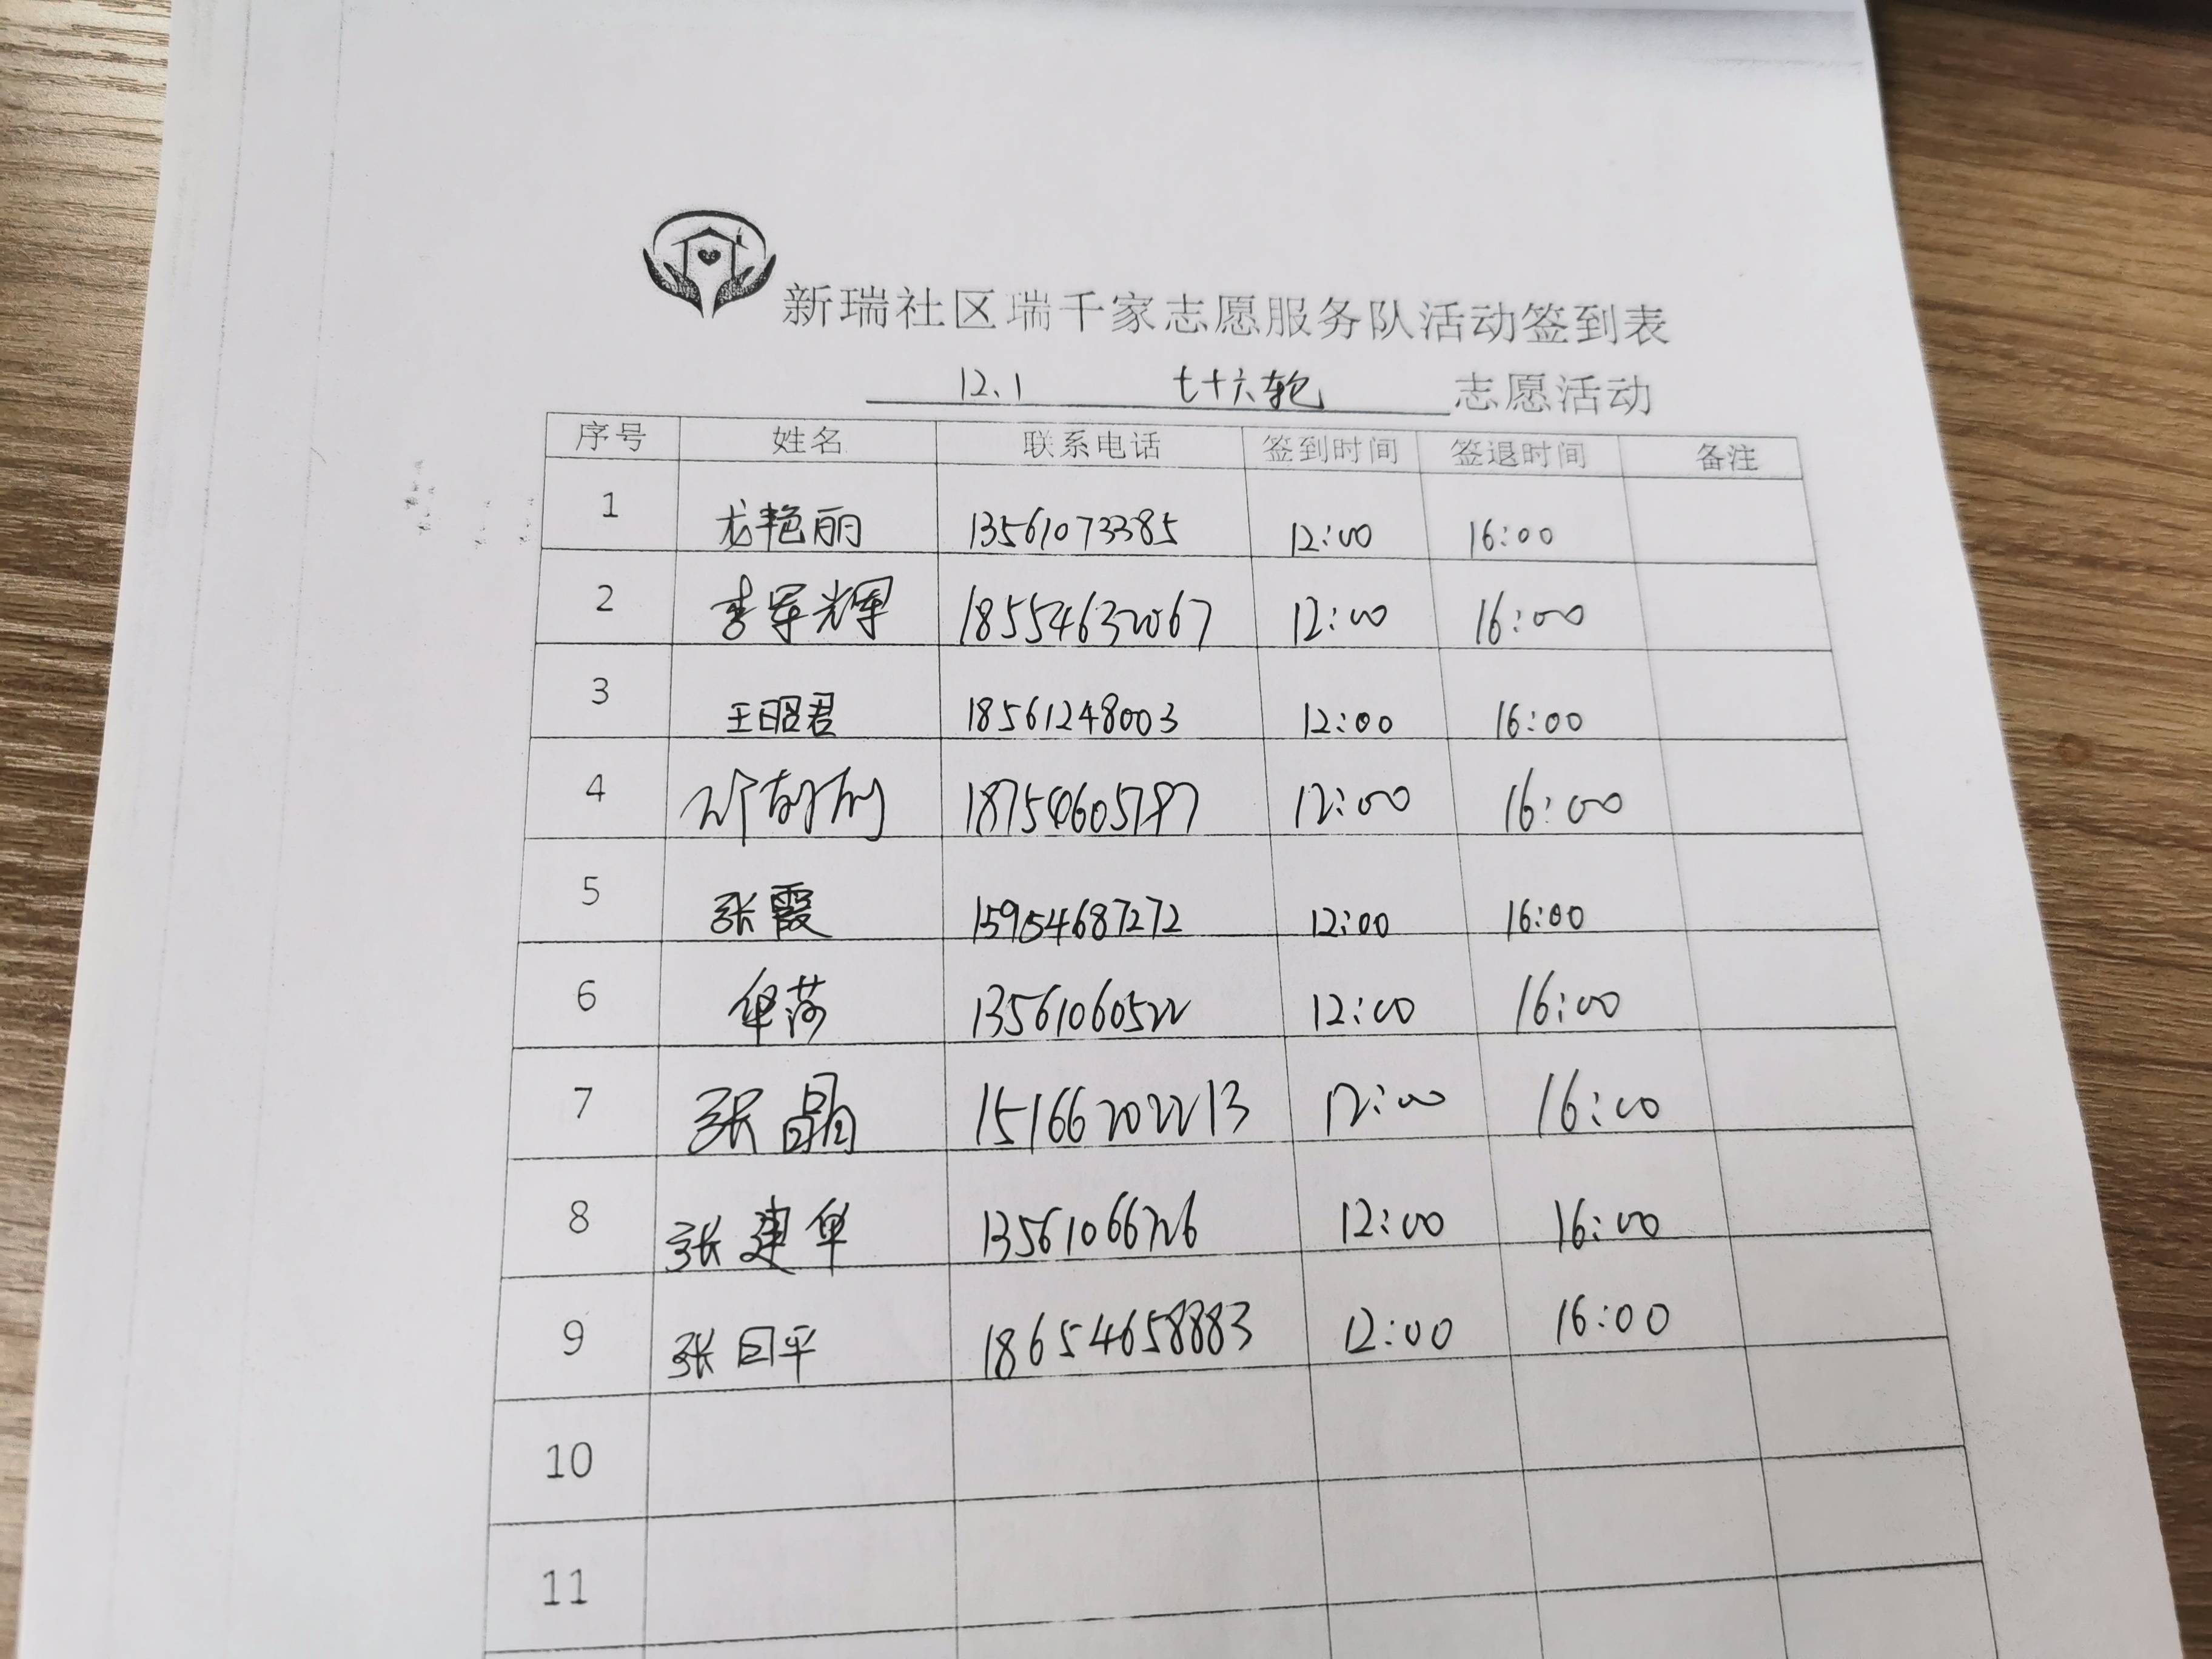 新瑞社区瑞千家志愿服务队活动签到表
12.1 七十六轮 志愿活动
序号 姓名 联系电话 签到时间 签退时间 备注
1 龙艳丽 13561073385 12:00 16:00
2 李军辉 18554632067 12:00 16:00
3 王昭君 18561248003 12:00 16:00
4 12:00 16:00
5 张霞 15954687272 12:00 16:00
6 华莎 13561060522 12:00 16:00
7 张晶 15166202213 12:00 16:00
8 张建华 13561066726 12:00 16:00
9 张国平 18654658883 12:00 16:00
10
11